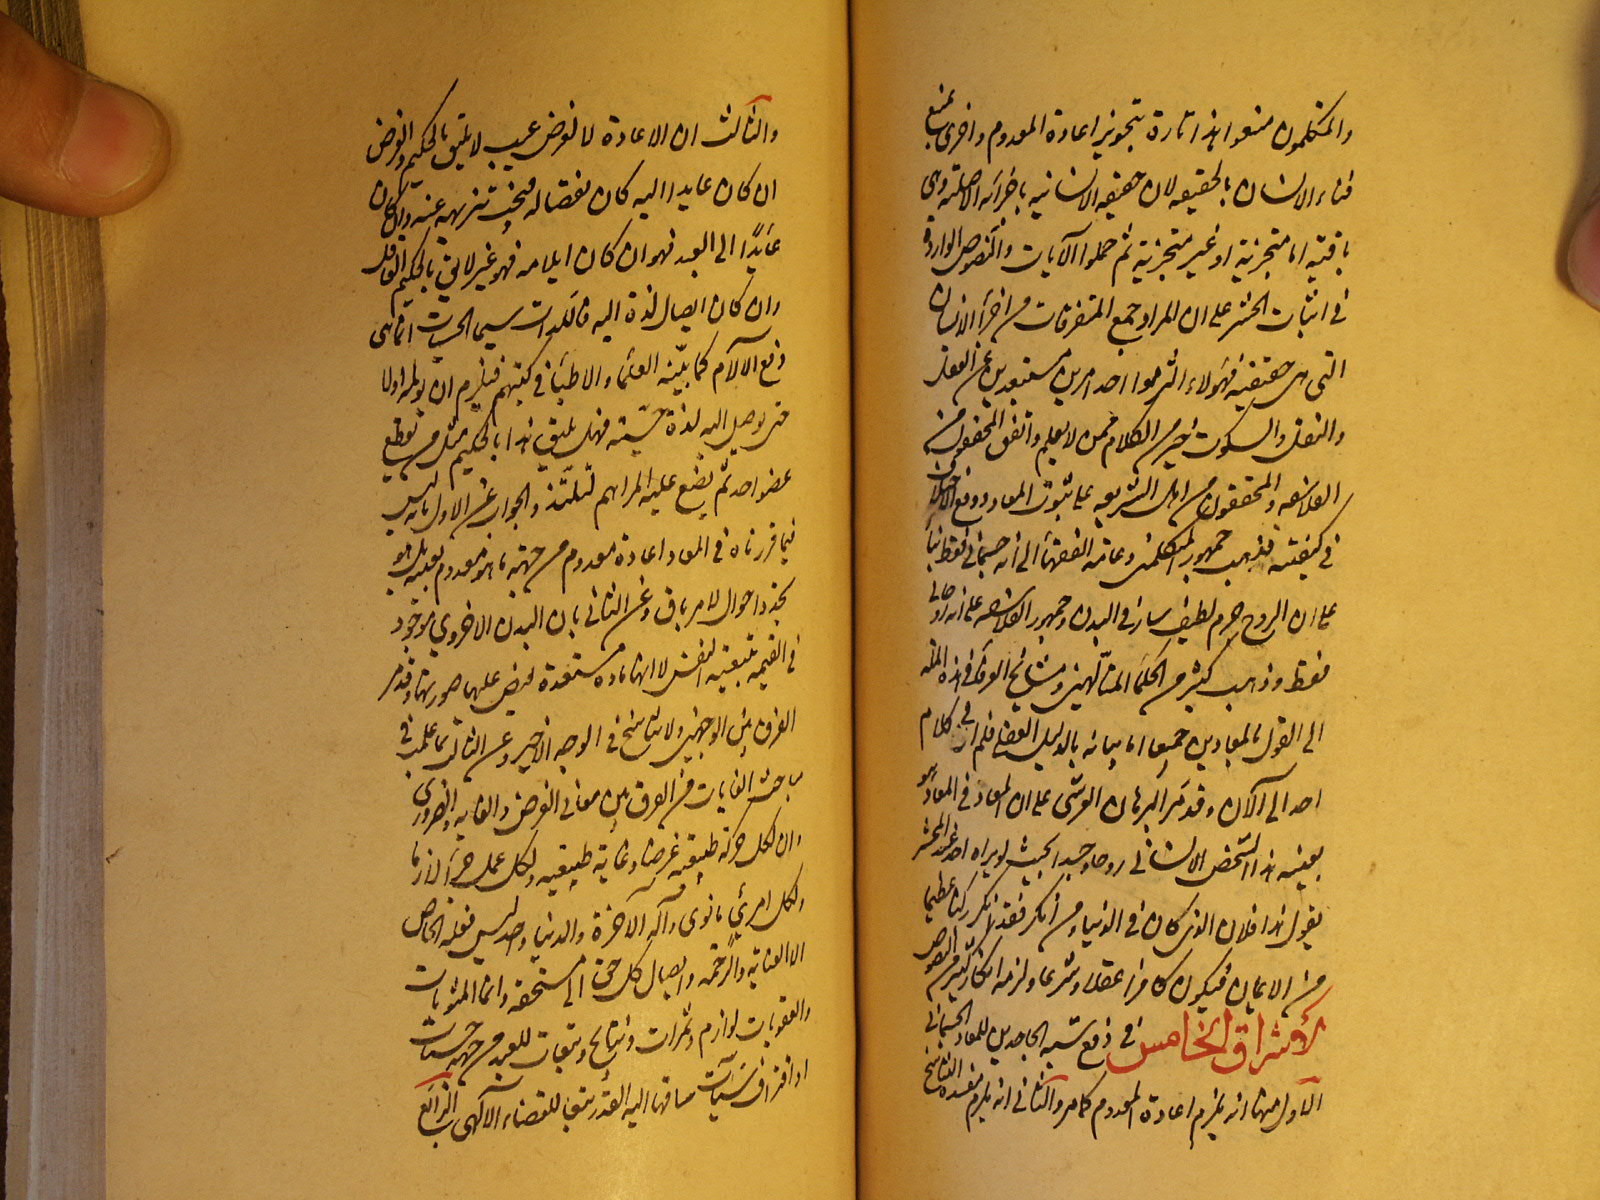 والمتكلمون منعوا هذا تارة بتجويز اعادة المعدوم واخرى بمنع
فناء الانسان بالحقيقة لان حقيقة الانسانية باجزائه الاصلية وهي
باقية اما متجزية او غير متجزية ثم حملوا الآيات والنصوص الواردة
في اثبات الحشر على ان المراد جمع المتفرقات من اجزاء الانسان
التي هي حقيقته فهؤلاء التزموا احد امرين مستبعدين عن العقل
والنقل والسكوت خير من الكلام ممن لا يعلم واتفق المحققون من
الفلاسفة والمحققون من اهل الشريعة على ثبوت المعاد ووقع الاختلاف
في كيفيته فذهب جمهور المتكلمين وعامة الفقهاء الى انه جسماني فقط بناء
على ان الروح جرم لطيف سار في البدن وجمهور الفلاسفة على انه روحاني
فقط وذهب كثير من الحكماء المتألهين ومشايخ العرفاء في هذه الملة
الى القول بالمعادين جميعا اما بيانه بالدليل العقلي فلم ار في كلام
احد الى الآن وقد مر البرهان العرشي على ان المعاد في المعاد هو
بعينه هذا الشخص الانساني روحا وجسدا بحيث لو يراه احد عند المحشر
يقول هذا فلان الذي كان في الدنيا ومن انكر فقد انكر ركنا عظيما
من الايمان فيكون كافرا عقلا وشرعا ولزمه انكار كثير من النصوص
الاشراق الخامس في دفع شبه الجاحدين للمعاد الجسماني
الاول منها انه يلزم اعادة المعدوم كما مر والثاني انه يلزم مفسدة التناسخ
والثالث ان الاعادة لا لغرض عبث لا يليق بالحكيم والغرض
ان كان عايدا اليه كان نقصا له فيجب تنزيهه عنه وان كان
عايدًا الى العبد فهو ان كان ايلامه فهو غير لايق بالحكيم العادل
وان كان ايصال لذة اليه فاللذات سيما الحسيات انما هي
دفع الآلام كما بيّنه العلماء والاطباء في كتبهم فيلزم ان يولمه اولا
حتى يوصل اليه لذة حسّية فهل يليق هذا بالحكيم مثل من يقطع
عضو احد ثم يضع عليه المراهم ليلتذ والجواب عن الاول بانه ليس
فيما قررناه في المعاد اعادة معدوم من جهة ما هو معدوم بعينه بل هو
تجدد احوال لامر باق وعن الثاني بان البدن الاخروي موجود
في القيمة بتبعية النفس لا انها مادة مستعدة يفيض عليها صورتها وقد مر
الفرق بين الوجهين ولا تناسخ في الوجه الاخير وعن الثالث بما علمت في
مباحث الغايات من الفرق بين معاني الغرض والغاية والضروري
وان لكل حركة طبيعية غرضا وغاية طبيعية ولكل عمل جزاء لازما
ولكل امرئ ما نوى وآله الآخرة والدنيا واحد ليس فعله الخاص
الا العناية والرحمة وايصال كل حق الى مستحقه وانما المثوبات
والعقوبات لوازم وثمرات ونتايج وتبعات للعبد من جهة حسنات
او اقتراف سيّآت ساقها اليه القدر تبعا للقضاء الآلهي الرابع